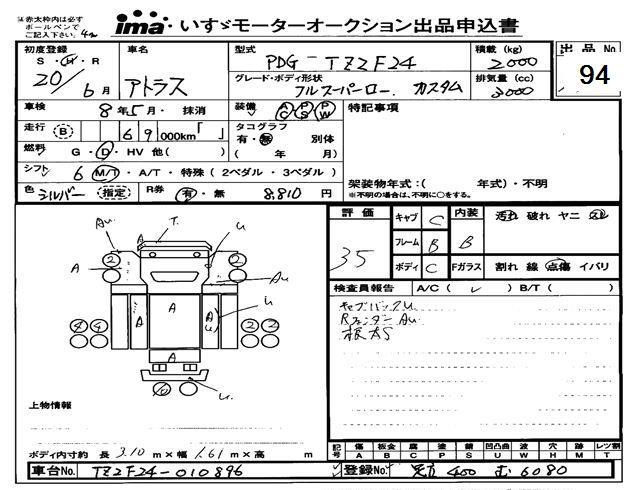 ※赤太枠内は必ず
ボールペンで
ご記入下さい。
ima いすゞモーターオークション出品申込書
初度登録 S・H・R 20/6月
車名 アトラス
型式 PDG-TZ2F24
積載(kg) 2000
出品No 94
グレード・ボディ形状 フルスーパーロー. カスタム
排気量(cc) 3000
車検 8年5月・抹消
装備 AC PS PW
特記事項
走行 (B) 69,000km「 」
タコグラフ 有・無 別体
( 年 月)
燃料 G・D・HV 他( )
シフト 6 M/T・A/T・特殊(2ペダル・3ペダル)
架装物年式:( 年式)・不明
※不明の場合は、不明に○をする。
色 シルバー (指定)
R券 有・無 8,810円
評価 35
キャブ C
内装 B
汚れ 破れ ヤニ
フレーム B
ボディ C
Fガラス 割れ 線 点傷 イバリ
検査員報告 A/C( ✓ ) B/T( )
キャブバックU
RフェンダーAu
Au T. U
A A
2 2
A Au
A A A U U
4 4 2 2
A
U.
上物情報
ボディ内寸約 長 3.10 m×幅 1.61 m×高 m
記号 傷 板金 腐 塗 錆 凹凸曲 波 穴 染 レツ割
A B C P S U W H M T
車台No. TZ2F24-010896
登録No. 足立 400 む 6080